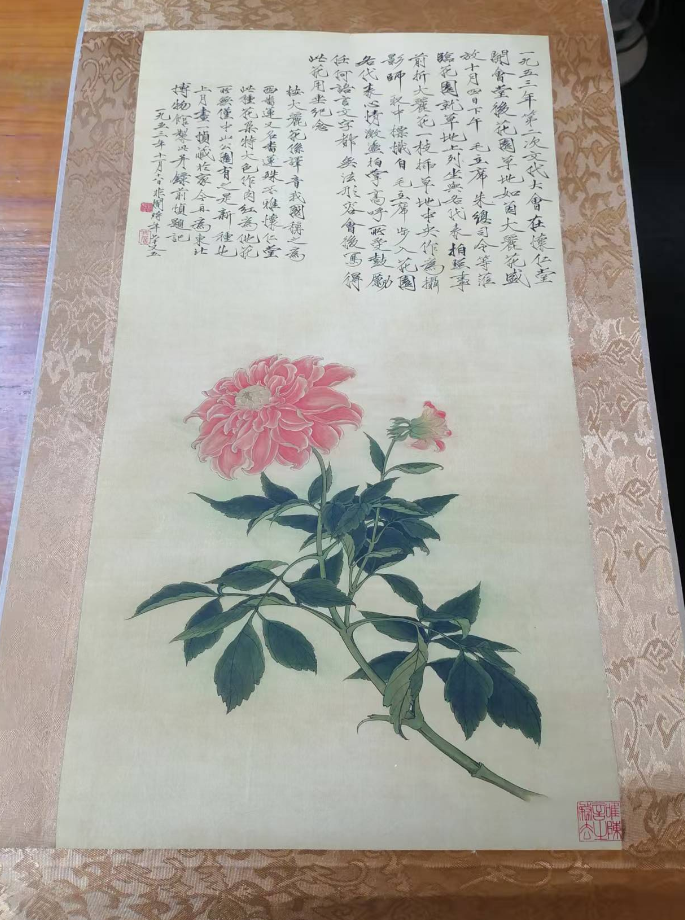 一九五三年第二次文代大會在懷仁堂
開會堂後花園草地如茵大麗花盛
放十月四日下午毛主席朱總司令等蒞
臨花園就草地上列坐與各代表拍照事
前折大麗花一枝插草地中央作為攝
影師取中標識自毛主席步入花園
各代表心情激盪拍掌高呼所受鼓勵
任何語言文字都無法形容會後寫得
此花用生紀念
按大麗花係譯音我國稱之為
西番蓮名書蓮殊不雅懷仁堂
此種花葉特大色作肉紅為他花
所無僅中山公園有之是新種也
上月畫一幀藏於家今日為東北
博物館製此弄鏡前慎題記
一九五三年十月 非闇